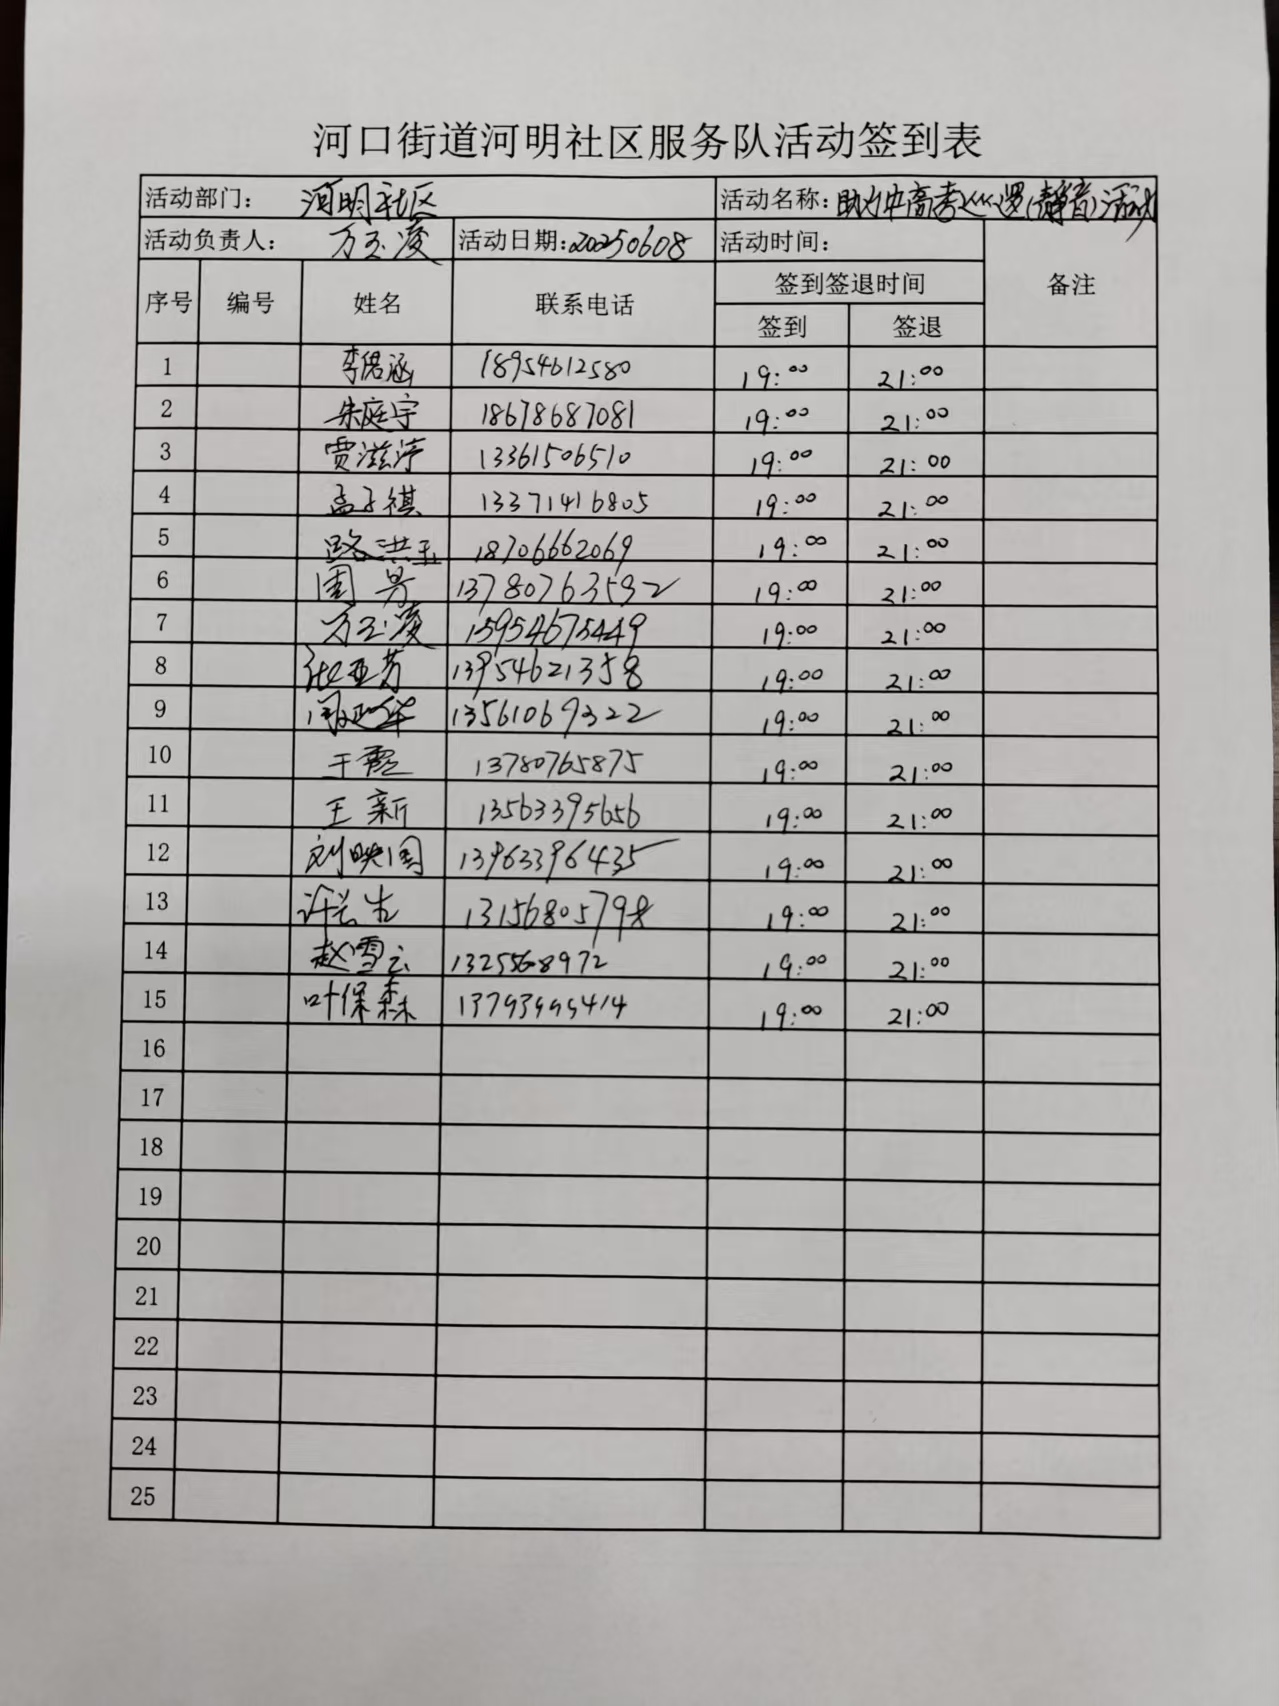 河口街道河明社区服务队活动签到表
活动部门: 河明社区 活动名称: 助力中高考巡逻(静音)活动
活动负责人: 万玉凌 活动日期: 20250608 活动时间:
序号 编号 姓名 联系电话 签到签退时间 备注
签到 签退
1 李偌涵 18954612580 19:00 21:00
2 朱庭宇 18678687081 19:00 21:00
3 贾滋渟 13361506510 19:00 21:00
4 孟子祺 13371416805 19:00 21:00
5 路洪玉 18706662069 19:00 21:00
6 周芳 13780763592 19:00 21:00
7 万玉凌 15954675449 19:00 21:00
8 张亚芳 13954621358 19:00 21:00
9 13561069322 19:00 21:00
10 王霞 13780765875 19:00 21:00
11 王新 13563395656 19:00 21:00
12 刘映国 13963396435 19:00 21:00
13 许长生 13156805798 19:00 21:00
14 赵雪云 13255668972 19:00 21:00
15 叶保森 19:00 21:00
16
17
18
19
20
21
22
23
24
25